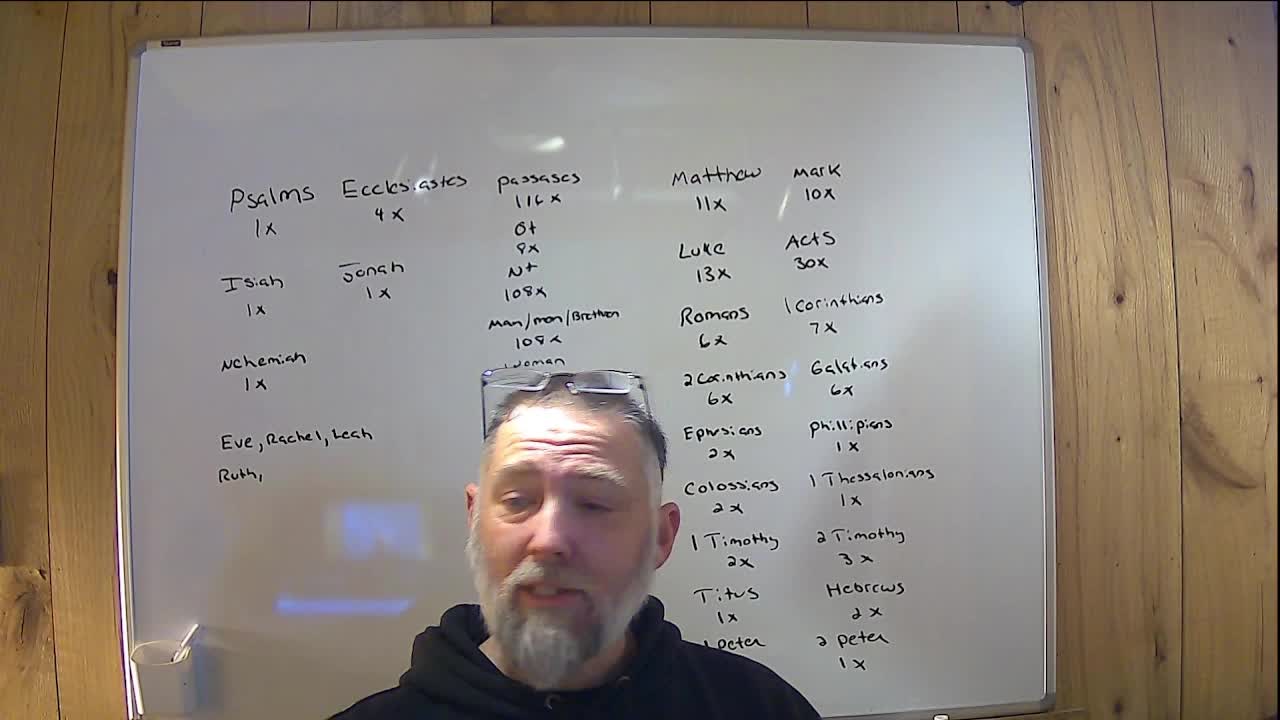 Psalms
1x
Ecclesiastes
4x
Isiah
1x
Jonah
1x
Nehemiah
1x
Eve, Rachel, Leah
Ruth,
passages
116x
Ot
8x
Nt
108x
Man/men/Brethren
108x
woman
Matthew
11x
Mark
10x
Luke
13x
Acts
30x
Romans
6x
1 Corinthians
7x
2 Corinthians
6x
Galatians
6x
Ephesians
2x
phillipians
1x
Colossians
2x
1 Thessalonians
1x
1 Timothy
2x
2 Timothy
3x
Titus
1x
Hebrews
2x
peter
2 peter
1x